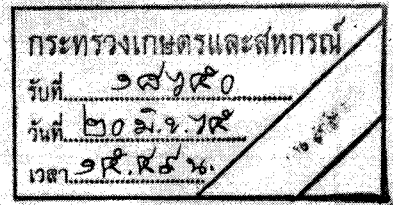 กระทรวงเกษตรและสหกรณ์
รับที่ ๑๘๖๕๐
วันที่ ๒๐ มิ.ย. ๖๕
เวลา ๑๕.๕๘ น.